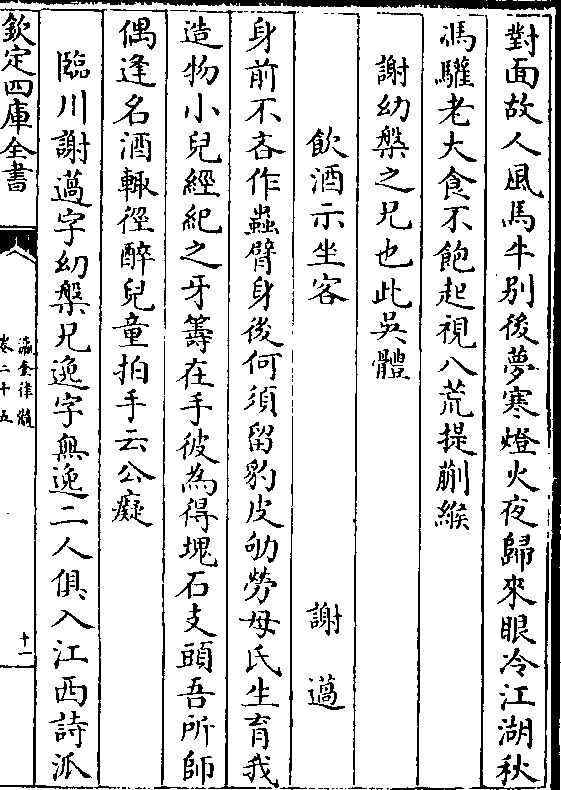 對面故人風馬牛别後夢寒燈火夜歸來眼冷江湖秋
馮驩老大食不飽起視八荒提蒯緱
謝幼槃之兄也此吳體
飲酒示坐客　謝薖
身前不吝作蟲臂身後何須留豹皮劬勞母氏生育我
造物小兒經紀之牙籌在手彼為得塊石支頭吾所師
偶逢名酒輙徑醉兒童拍手云公癡
臨川謝薖字幼槃兄逸字無逸二人俱入江西詩派
欽定四庫全書
瀛奎律髓
卷二十五
十二